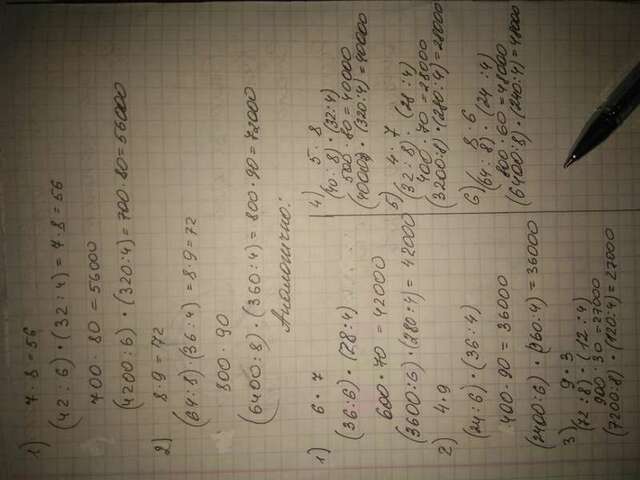 1) 7 · 8 = 56
(42 : 6) · (32 : 4) = 7 · 8 = 56
700 · 80 = 56000
(4200 : 6) · (320 : 4) = 700 · 80 = 56000
2) 8 · 9 = 72
(64 : 8) · (36 : 4) = 8 · 9 = 72
800 · 90
(6400 : 8) · (360 : 4) = 800 · 90 = 72000
Аналогично:
1) 6 · 7
(36 : 6) · (28 : 4)
600 · 70 = 42000
(3600 : 6) · (280 : 4) = 42000
2) 4 · 9
(24 : 6) · (36 : 4)
400 · 90 = 36000
(2400 : 6) · (360 : 4) = 36000
3) 9 · 3
(72 : 8) · (12 : 4)
900 · 30 = 27000
(7200 : 8) · (120 : 4) = 27000
4) 5 · 8
(40 : 8) · (32 : 4)
500 · 80 = 40000
(4000 : 8) · (320 : 4) = 40000
5) 4 · 7
(32 : 8) · (28 : 4)
400 · 70 = 28000
(3200 : 8) · (280 : 4) = 28000
6) 8 · 6
(64 : 8) · (24 : 4)
800 · 60 = 48000
(6400 : 8) · (240 : 4) = 48000